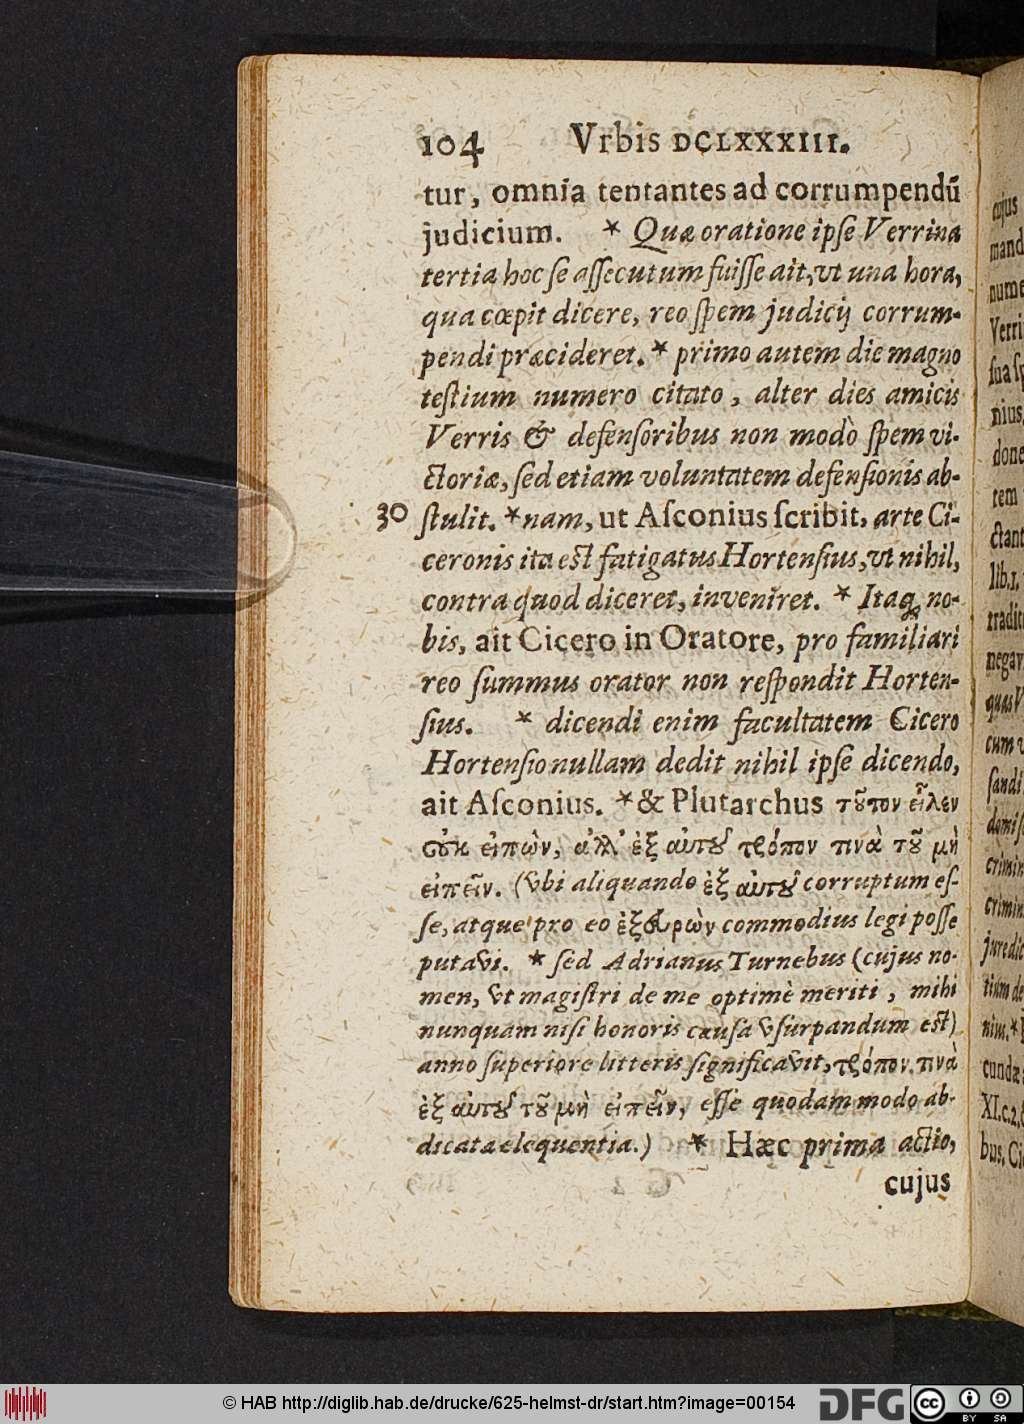 104 Vrbis DCLXXXIII.
tur, omnia tentantes ad corrumpendũ
judicium. * Quæ oratione ipſe Verrina
tertia hoc ſe aſſecutum fuiſſe ait, vt una hora,
qua cœpit dicere, reo ſpem judicij corrum-
pendi præcideret. * primo autem die magno
teſtium numero citato, alter dies amicis
Verris & defenſoribus non modò ſpem vi-
ctoriæ, ſed etiam voluntatem defenſionis ab-
30 ſtulit. * nam, ut Aſconius ſcribit, arte Ci-
ceronis ita eſt fatigatus Hortenſius, vt nihil,
contra quod diceret, inveniret. * Itaq; no-
bis, ait Cicero in Oratore, pro familiari
reo ſummus orator non reſpondit Horten-
ſius. * dicendi enim facultatem Cicero
Hortenſio nullam dedit nihil ipſe dicendo,
ait Aſconius. * & Plutarchus τοῦτον εἷλεν
οὐκ εἰπὼν, ἀλλ' ἐξ αὐτοῦ τρόπον τινὰ τοῦ μὴ
εἰπεῖν. (vbi aliquando ἐξ αὐτοῦ corruptum eſ-
ſe, atque pro eo ἐξευρὼν commodius legi poſſe
putavi. * ſed Adrianus Turnebus (cujus no-
men, vt magiſtri de me optimè meriti, mihi
nunquam niſi honoris cauſa vſurpandum eſt)
anno ſuperiore litteris ſignificavit, τρόπον τινὰ
ἐξ αὐτοῦ τοῦ μὴ εἰπεῖν, eſſe quodammodo ab-
dicata eloquentia.) * Hæc prima actio,
cujus
ejus
mand
nume
Verri
ſua ſp
nius,
done
rem
ctant
lib.1.
tradit
negav
quas V
cum v
ſandi
domiſ
crimin
crimin
juredic
tium de
nius. *
cundæ
XI.c.2,
bus, Ci
© HAB http://diglib.hab.de/drucke/625-helmst-dr/start.htm?image=00154
DFG
cc BY SA